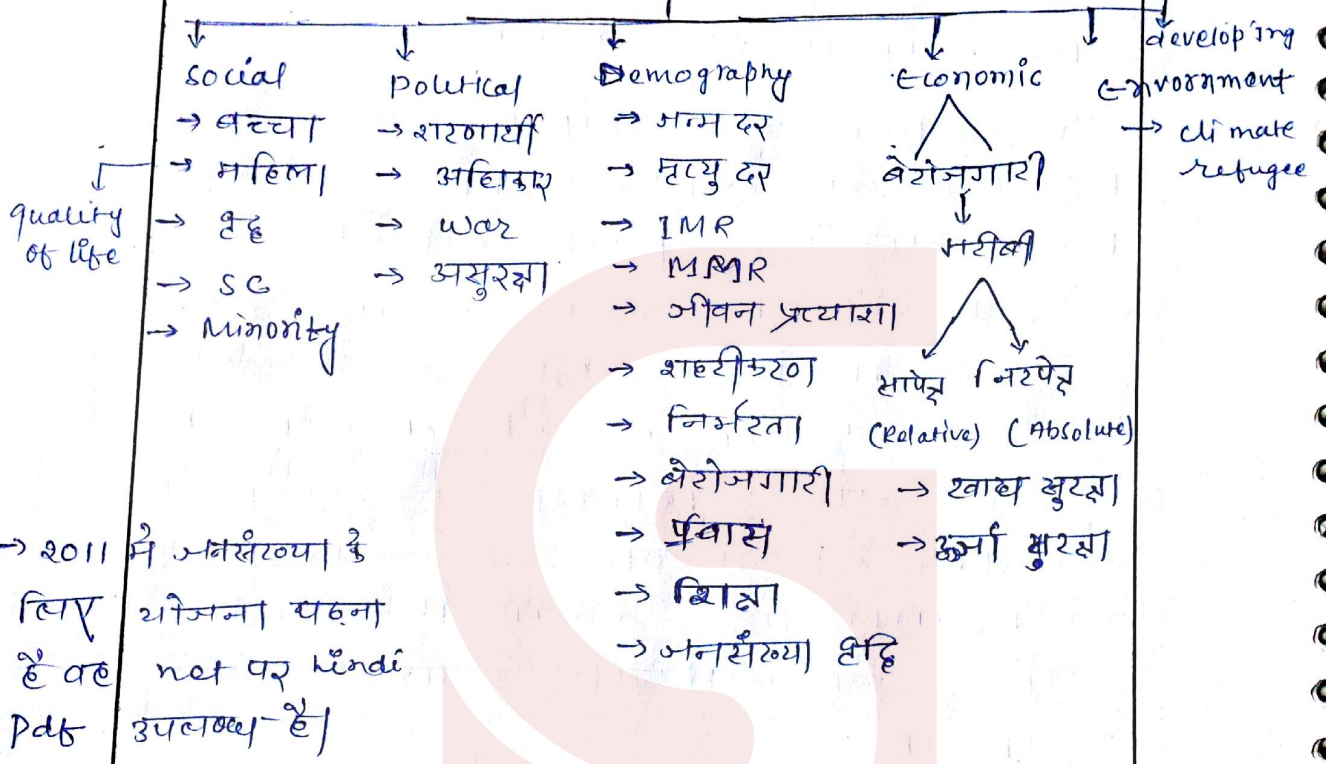 social
→ बच्चा
→ महिला
→ वृद्ध
→ SC
→ Minority
quality
of life
Political
→ शरणार्थी
→ अधिकार
→ war
→ असुरक्षा
Demography
→ जन्म दर
→ मृत्यु दर
→ IMR
→ MMR
→ जीवन प्रत्याशा
→ शहरीकरण
→ निर्भरता
→ बेरोजगारी
→ प्रवास
→ शिक्षा
→ जनसंख्या वृद्धि
Economic
बेरोजगारी
गरीबी
सापेक्ष निरपेक्ष
(Relative) (Absolute)
→ खाद्य सुरक्षा
→ ऊर्जा सुरक्षा
developing
Envornment
→ climate
refugee
→ 2011 मे जनसंख्या के
लिए योजना पढ़ना
है वह net पर hindi
Pdf उपलब्ध है।